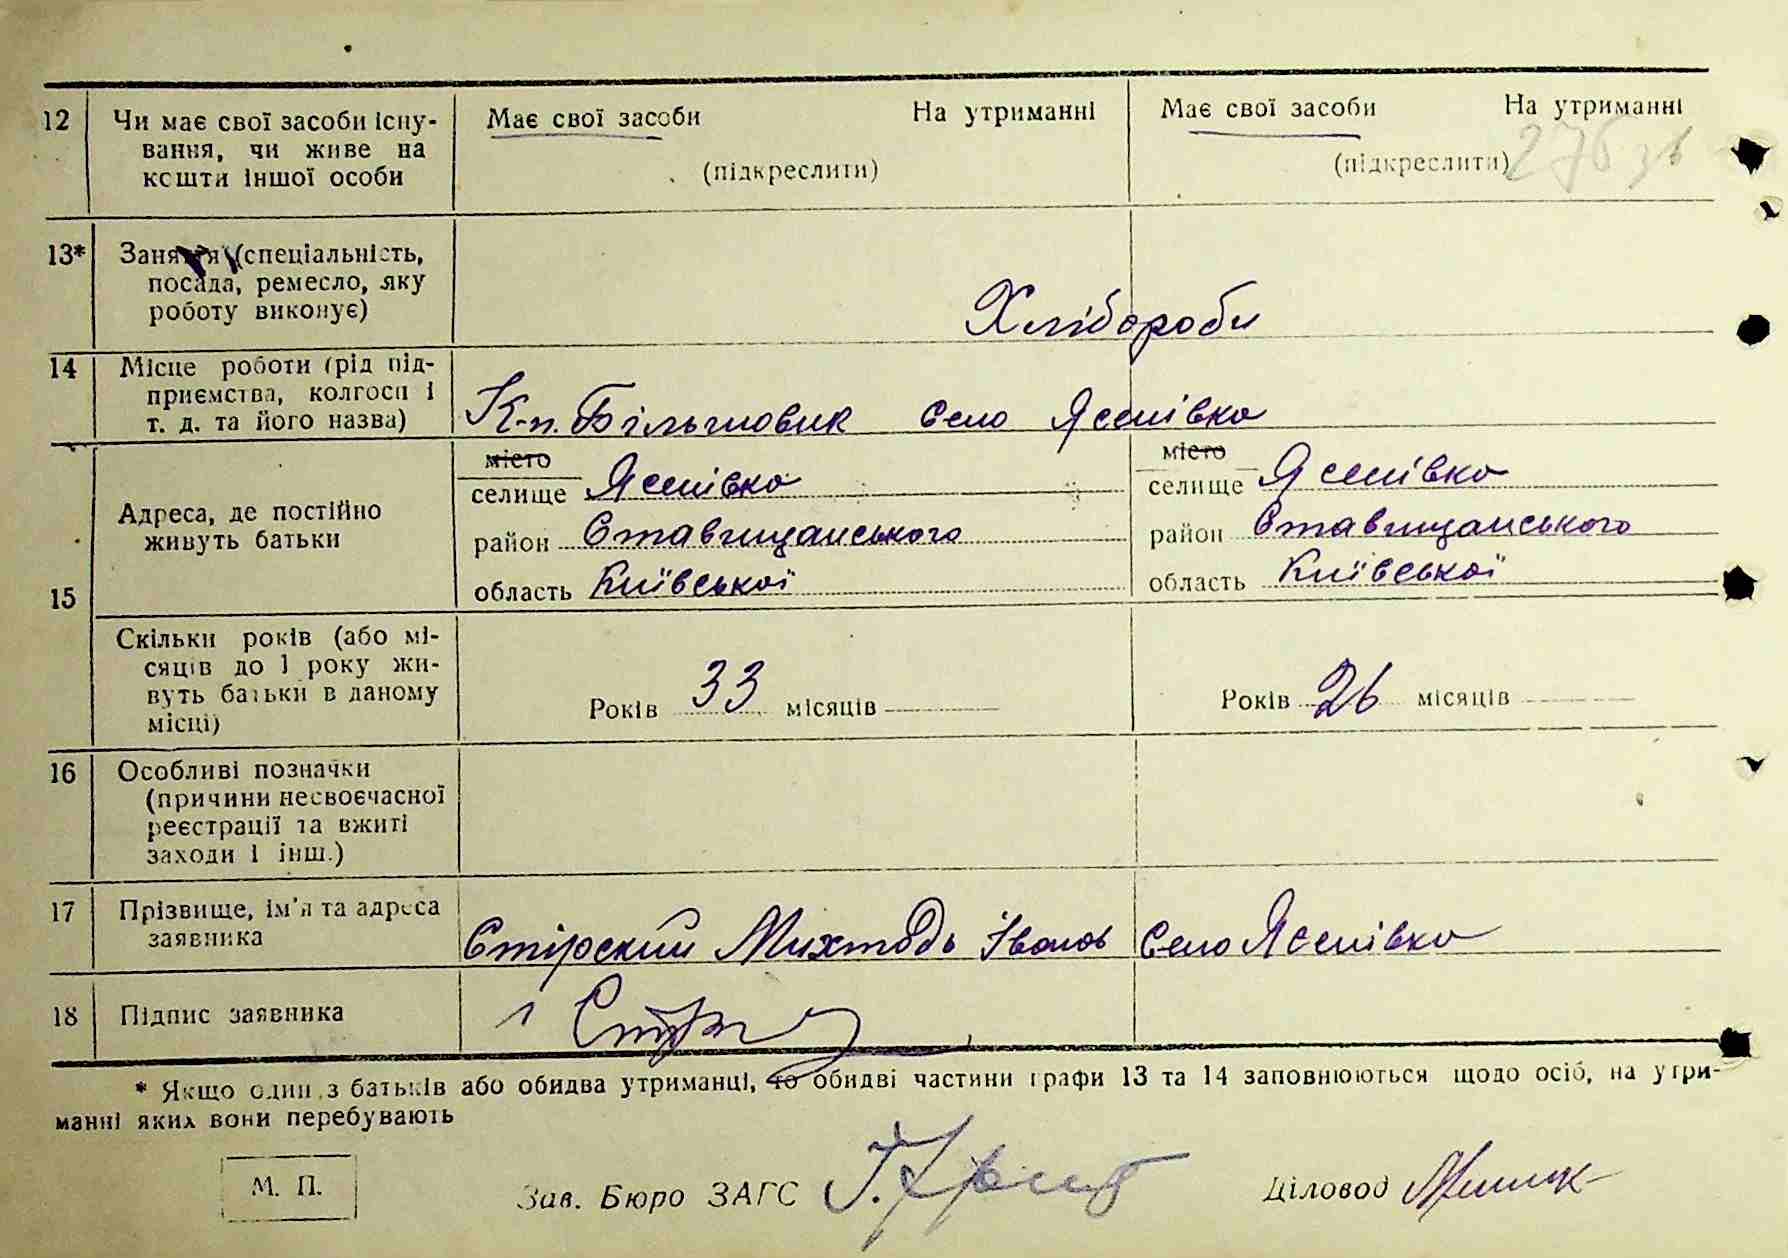 12 Чи має свої засоби існу- Має свої засоби На утриманні Має свої засоби На утриманні
вання, чи живе на
кошти іншої особи (підкреслити) (підкреслити) 276 зв
13* Заняття (спеціальність,
посада, ремесло, яку
роботу виконує) Хлібороби
14 Місце роботи (рід під-
приємства, колгосп і
т. д. та його назва) К-п. Більшовик село Ясенівка
місто місто
селище Ясенівка селище Ясенівка
Адреса, де постійно
живуть батьки район Ставищанського район Ставищанського
15 область Київської область Київської
Скільки років (або мі-
сяців до 1 року жи-
вуть батьки в даному Років 33 місяців Років 26 місяців
місці)
16 Особливі позначки
(причини несвоєчасної
реєстрації та вжиті
заходи і інш.)
17 Прізвище, ім'я та адреса
заявника Іванов Село Ясенівка
18 Підпис заявника
* Якщо один з батьків або обидва утриманці, то обидві частини графи 13 та 14 заповнюються щодо осіб, на утри-
манні яких вони перебувають
М. П. Зав. Бюро ЗАГС Діловод